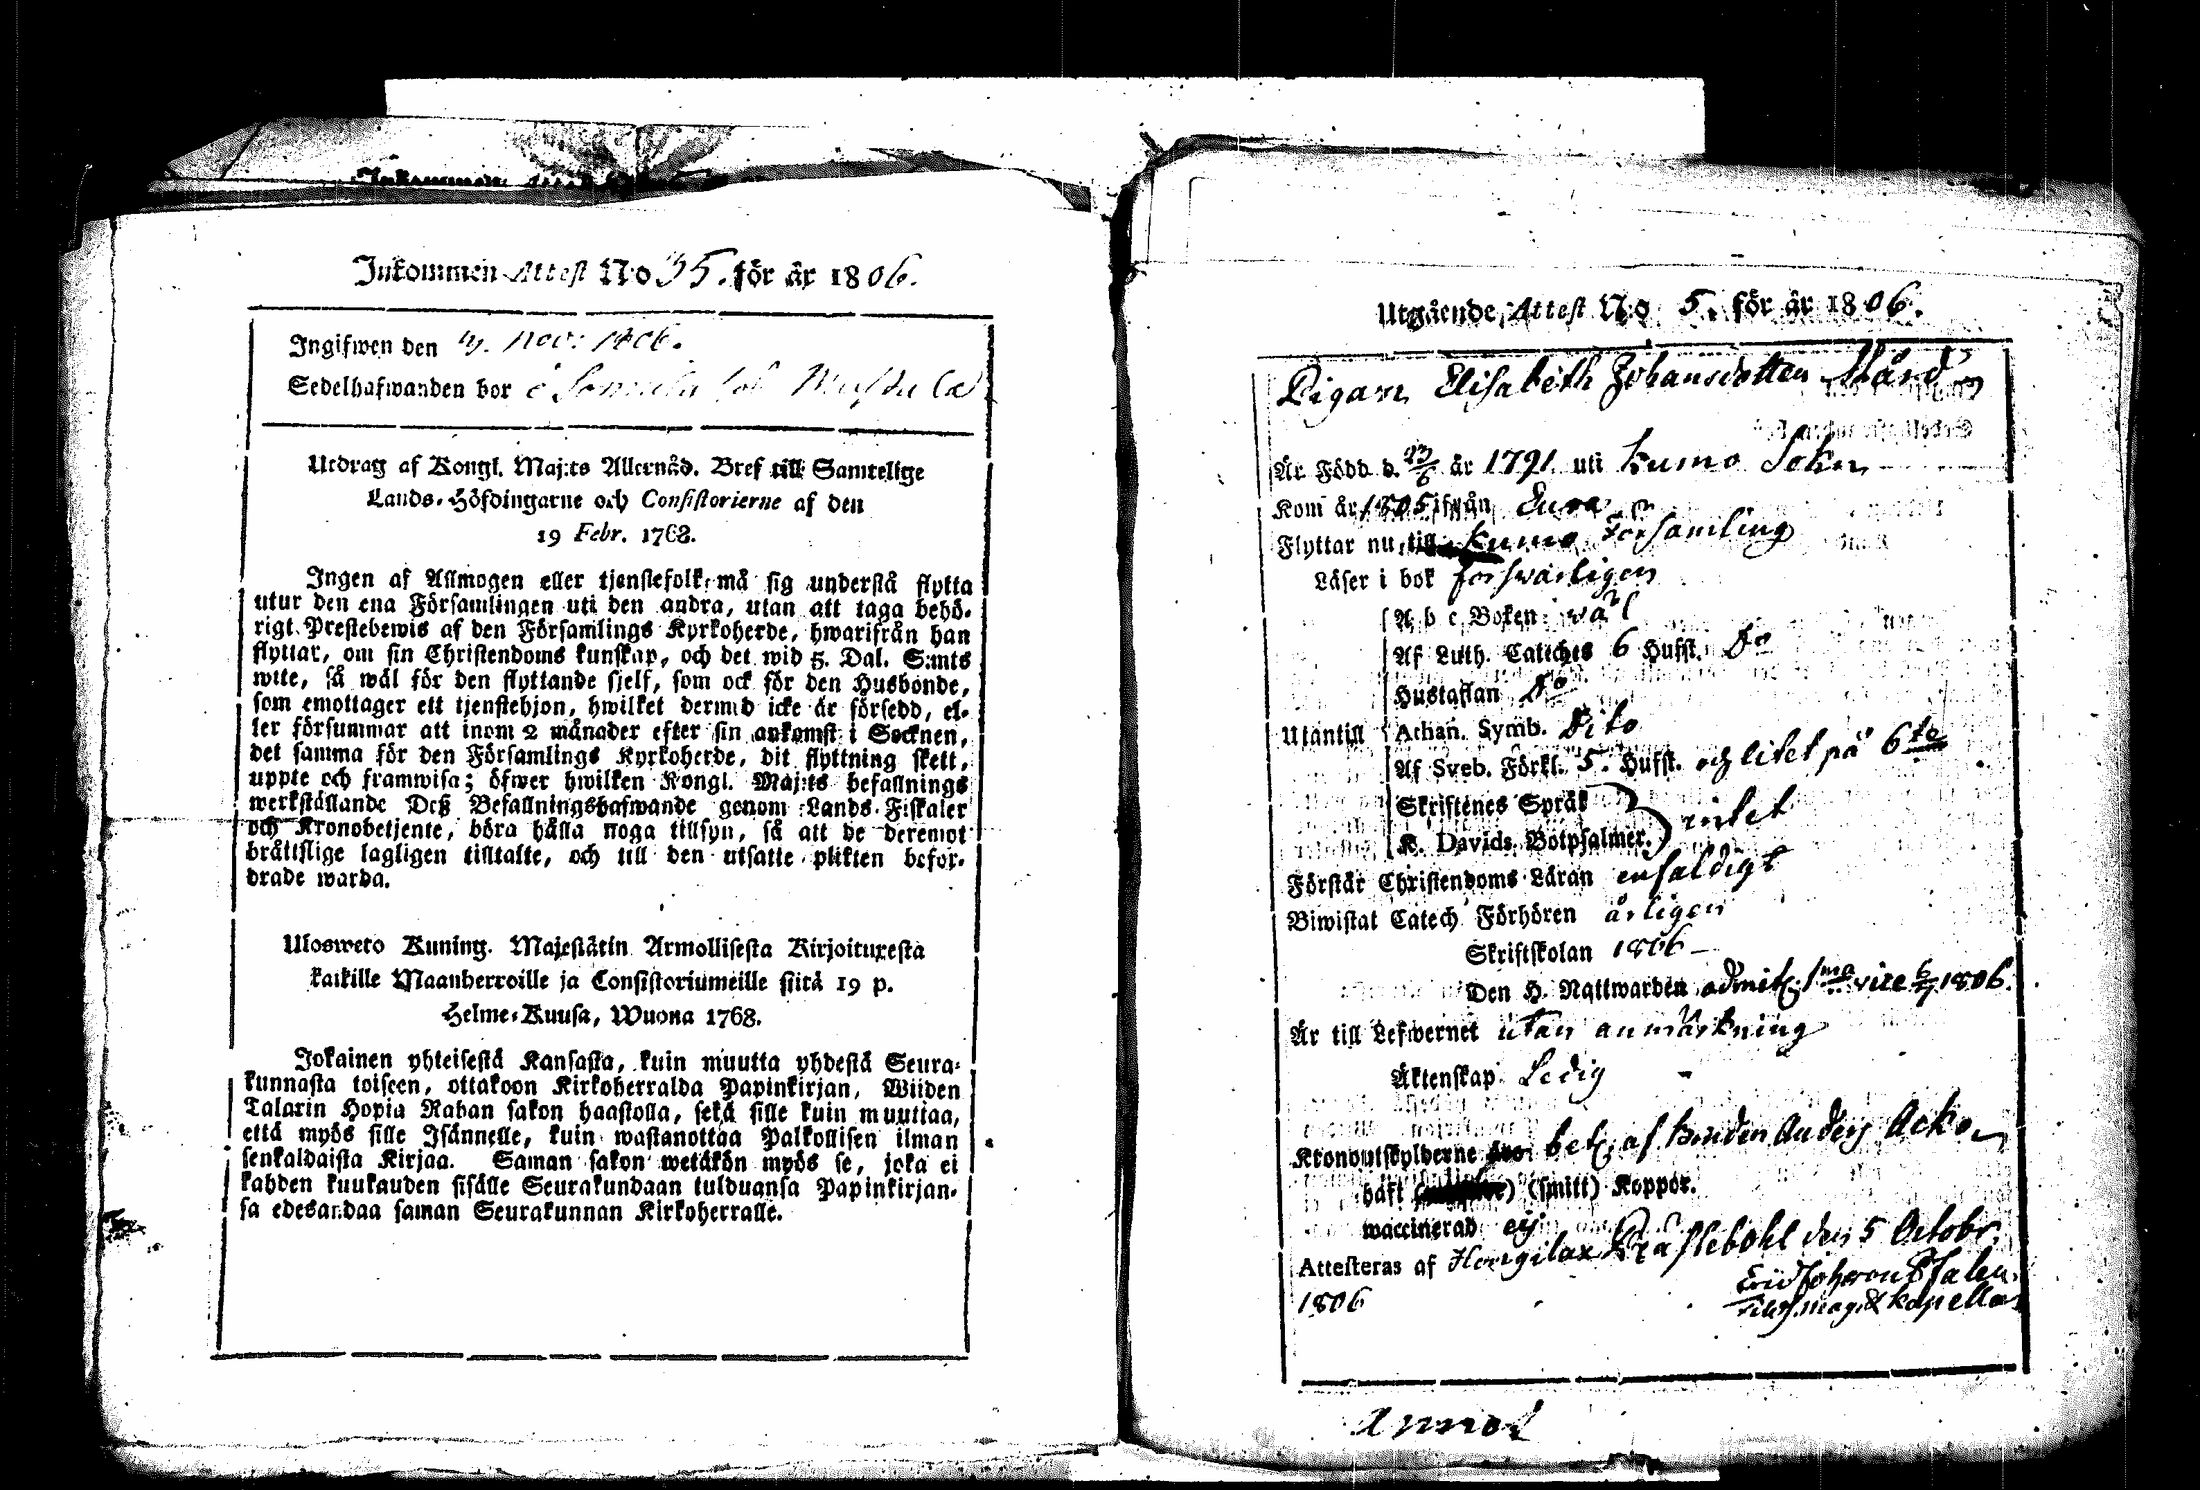 Inkommen Attest N:o 35. för år 1806.
Ingifwen den Nov: 1806.
Sedelhafwanden bor
Utdrag af Kongl. Maj:ts Allernåd. Bref till Samtelige
Lands-Höfdingarne och Consistorierne af den
19 Febr. 1768.
Ingen af Allmogen eller tjenstefolk må sig understå flytta
utur den ena Församlingen uti den andra, utan att taga behö-
rigt Prestebewis af den Församlings Kyrkoherde, hwarifrån han
flyttar, om sin Christendoms kunskap, och det wid 5. Dal. S:mts
wite, så wäl för den flyttande sjelf, som ock för den Husbonde,
som emottager ett tjenstehjon, hwilket dermed icke är försedd, el-
ler försummar att inom 2 månader efter sin ankomst i Socknen,
det samma för den Församlings Kyrkoherde, dit flyttning skett,
uppte och framwisa; öfwer hwilken Kongl. Maj:ts befallnings
werkställande Deß Befallningshafwande genom Lands-Fiskaler
och Kronobetjente, böra hålla noga tillsyn, så att de deremot
bråttslige lagligen tilltalte, och till den utsatte plikten befor-
drade warda.
Ulosweto Kuning. Majestätin Armollisesta Kirjoituxesta
kaikille Maanherroille ja Consistoriumeille siitä 19 p.
Helme-Kuusa, Wuona 1768.
Jokainen yhteisestä Kansasta, kuin muutta yhdestä Seura-
kunnasta toiseen, ottakoon Kirkoherralda Papinkirjan, Wiiden
Talarin Hopia Rahan sakon haastolla, sekä sille kuin muuttaa,
että myös sille Isännelle, kuin wastanottaa Palkollisen ilman
senkaldaista Kirjaa. Saman sakon wetäkön myös se, joka ei
kahden kuukauden sisälle Seurakundaan tulduansa Papinkirjan-
sa edesandaa saman Seurakunnan Kirkoherralle.
Utgående Attest N:o 5. för år 1806.
Pigan Elisabeth Johansdotter Mård
Är Född d. 23/6 år 1791 uti Kumo Sokn
Kom år 1805 ifrån Eura
Flyttar nu till Kumo Församling
Läser i bok forswarligen
A b c Boken wäl
Af Luth. Catches 6 Hufst. Do
Hustaflan Do
Utantill Athan. Symb. Dito
Af Sveb. Förkl. 5. Hufst. och litet på 6te
Skriftenes Språk
K. Davids Botpsalmer. intet
Förstår Christendoms Läran enfaldigt
Biwistat Catech Förhören årligen
Skriftskolan 1806
Den H. Nattwarden admit. 1ma vice 6/7 1806.
Är till Lefwernet utan anmärkning
Äktenskap Ledig
Kronoutskylderne äro bet. af bonden Anders Acko
haft (smitt) Koppor.
waccinerad ej
Attesteras af Hongilax Prästebohl den 5 Octobr.
1806
kapellan
Annot